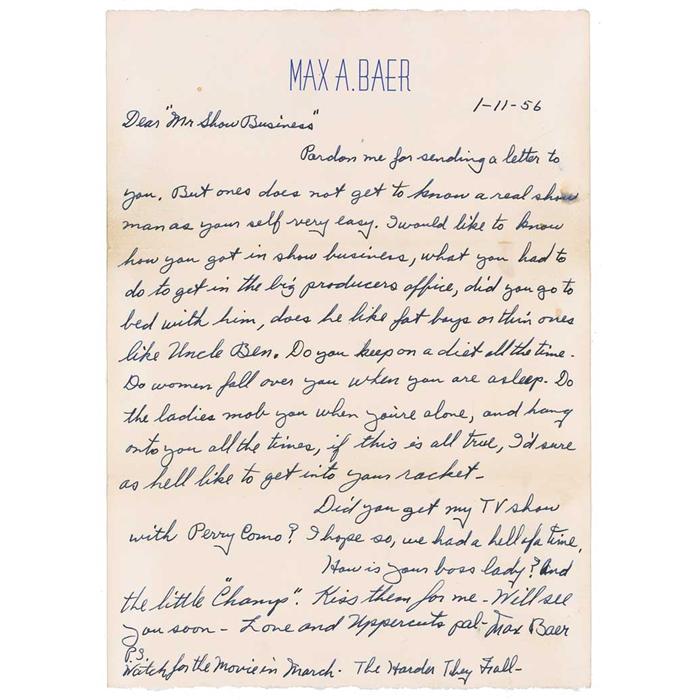 MAX A. BAER
1-11-56
Dear "Mr Show Business"
Pardon me for sending a letter to
you. But ones does not get to know a real show
man as your self very easy. I would like to know
how you got in show business, what you had to
do to get in the big producers office, did you go to
bed with him, does he like fat boys or thin ones
like Uncle Ben. Do you keep on a diet all the time.
Do women fall over you when you are asleep. Do
the ladies mob you when you're alone, and hang
onto you all the times, if this is all true, I'd sure
as hell like to get into your racket -
Did you get my TV show
with Perry Como? I hope so, we had a hell of a time.
How is your boss lady? And
the little "Champ". Kiss them for me - Will see
you soon - Love and Uppercuts pal - Max Baer
P.S.
Watch for the Movie in March. The Harder They Fall -